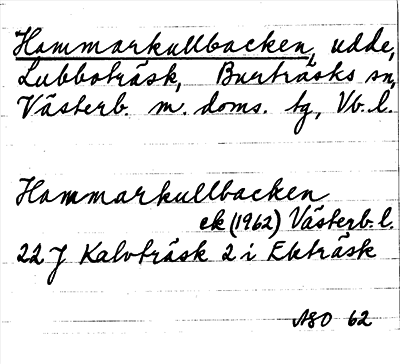 Hammarkullbacken, udde,
Lubboträsk, Burträsks sn,
Västerb. m. doms. tg, Vb. l.
Hammarkullbacken
ek (1962) Västerb. l.
22 J Kalvträsk 2 i Ekträsk
ASO 62